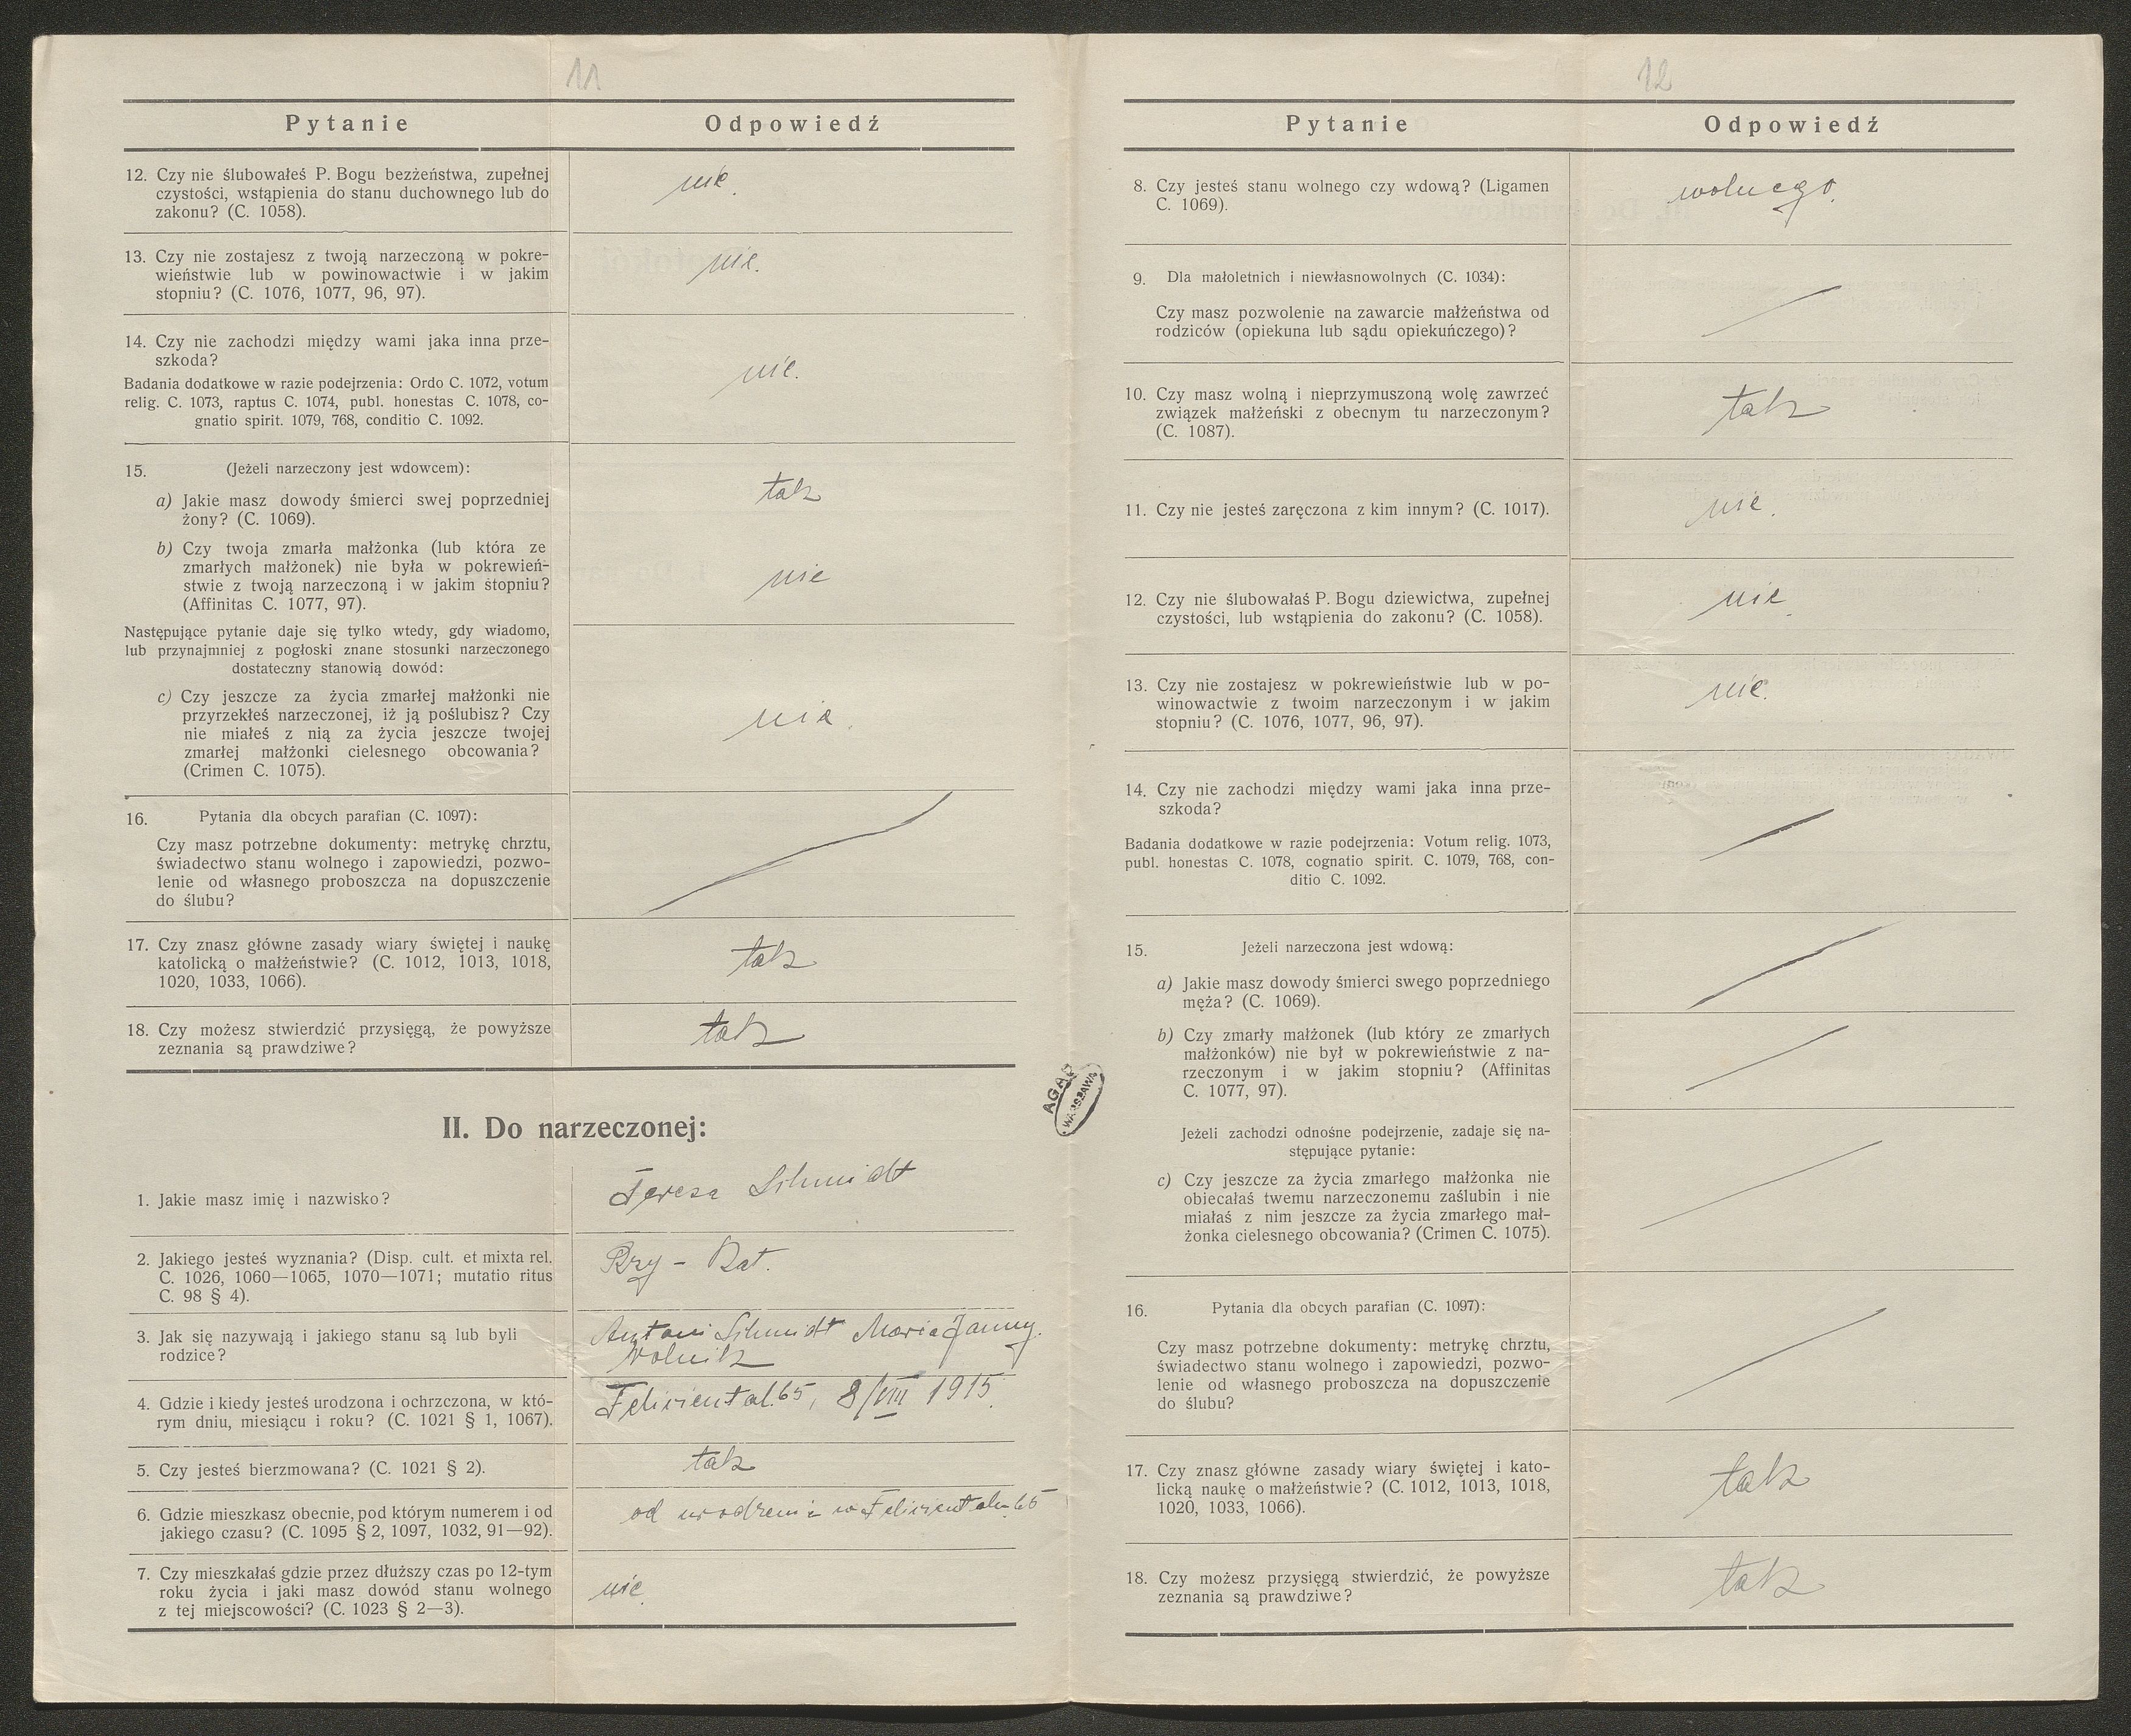 11
Pytanie Odpowiedź
12. Czy nie ślubowałeś P. Bogu bezżeństwa, zupełnej
czystości, wstąpienia do stanu duchownego lub do
zakonu? (C. 1058).
nie.
13. Czy nie zostajesz z twoją narzeczoną w pokre-
wieństwie lub w powinowactwie i w jakim
stopniu? (C. 1076, 1077, 96, 97).
nie.
14. Czy nie zachodzi między wami jaka inna prze-
szkoda?
Badania dodatkowe w razie podejrzenia: Ordo C. 1072, votum
relig. C. 1073, raptus C. 1074, publ. honestas C. 1078, co-
gnatio spirit. 1079, 768, conditio C. 1092.
nie.
15. (Jeżeli narzeczony jest wdowcem):
a) Jakie masz dowody śmierci swej poprzedniej
żony? (C. 1069).
tak
b) Czy twoja zmarła małżonka (lub która ze
zmarłych małżonek) nie była w pokrewień-
stwie z twoją narzeczoną i w jakim stopniu?
(Affinitas C. 1077, 97).
nie
Następujące pytanie daje się tylko wtedy, gdy wiadomo,
lub przynajmniej z pogłoski znane stosunki narzeczonego
dostateczny stanowią dowód:
c) Czy jeszcze za życia zmarłej małżonki nie
przyrzekłeś narzeczonej, iż ją poślubisz? Czy
nie miałeś z nią za życia jeszcze twojej
zmarłej małżonki cielesnego obcowania?
(Crimen C. 1075).
nie.
16. Pytania dla obcych parafian (C. 1097):
Czy masz potrzebne dokumenty: metrykę chrztu,
świadectwo stanu wolnego i zapowiedzi, pozwo-
lenie od własnego proboszcza na dopuszczenie
do ślubu?
17. Czy znasz główne zasady wiary świętej i naukę
katolicką o małżeństwie? (C. 1012, 1013, 1018,
1020, 1033, 1066).
tak
18. Czy możesz stwierdzić przysięgą, że powyższe
zeznania są prawdziwe?
tak
II. Do narzeczonej:
1. Jakie masz imię i nazwisko?
Teresa Schmidt
2. Jakiego jesteś wyznania? (Disp. cult. et mixta rel.
C. 1026, 1060—1065, 1070—1071; mutatio ritus
C. 98 § 4).
Rzy - Kat.
3. Jak się nazywają i jakiego stanu są lub byli
rodzice?
Antoni Schmidt Maria
Rolnik
4. Gdzie i kiedy jesteś urodzona i ochrzczona, w któ-
rym dniu, miesiącu i roku? (C. 1021 § 1, 1067).
Feliciental.65, 8/VIII 1915.
5. Czy jesteś bierzmowana? (C. 1021 § 2).
tak
6. Gdzie mieszkasz obecnie, pod którym numerem i od
jakiego czasu? (C. 1095 § 2, 1097, 1032, 91—92).
od urodzenia w Felicientalu 65
7. Czy mieszkałaś gdzie przez dłuższy czas po 12-tym
roku życia i jaki masz dowód stanu wolnego
z tej miejscowości? (C. 1023 § 2—3).
nie.
AGAD
WARSZAWA
12
Pytanie Odpowiedź
8. Czy jesteś stanu wolnego czy wdową? (Ligamen
C. 1069).
wolnego.
9. Dla małoletnich i niewłasnowolnych (C. 1034):
Czy masz pozwolenie na zawarcie małżeństwa od
rodziców (opiekuna lub sądu opiekuńczego)?
10. Czy masz wolną i nieprzymuszoną wolę zawrzeć
związek małżeński z obecnym tu narzeczonym?
(C. 1087).
tak
11. Czy nie jesteś zaręczona z kim innym? (C. 1017).
nie.
12. Czy nie ślubowałaś P. Bogu dziewictwa, zupełnej
czystości, lub wstąpienia do zakonu? (C. 1058).
nie.
13. Czy nie zostajesz w pokrewieństwie lub w po-
winowactwie z twoim narzeczonym i w jakim
stopniu? (C. 1076, 1077, 96, 97).
nie.
14. Czy nie zachodzi między wami jaka inna prze-
szkoda?
Badania dodatkowe w razie podejrzenia: Votum relig. 1073,
publ. honestas C. 1078, cognatio spirit. C. 1079, 768, con-
ditio C. 1092.
15. Jeżeli narzeczona jest wdową:
a) Jakie masz dowody śmierci swego poprzedniego
męża? (C. 1069).
b) Czy zmarły małżonek (lub który ze zmarłych
małżonków) nie był w pokrewieństwie z na-
rzeczonym i w jakim stopniu? (Affinitas
C. 1077, 97).
Jeżeli zachodzi odnośne podejrzenie, zadaje się na-
stępujące pytanie:
c) Czy jeszcze za życia zmarłego małżonka nie
obiecałaś twemu narzeczonemu zaślubin i nie
miałaś z nim jeszcze za życia zmarłego mał-
żonka cielesnego obcowania? (Crimen C. 1075).
16. Pytania dla obcych parafian (C. 1097):
Czy masz potrzebne dokumenty: metrykę chrztu,
świadectwo stanu wolnego i zapowiedzi, pozwo-
lenie od własnego proboszcza na dopuszczenie
do ślubu?
17. Czy znasz główne zasady wiary świętej i kato-
licką naukę o małżeństwie? (C. 1012, 1013, 1018,
1020, 1033, 1066).
tak
18. Czy możesz przysięgą stwierdzić, że powyższe
zeznania są prawdziwe?
tak